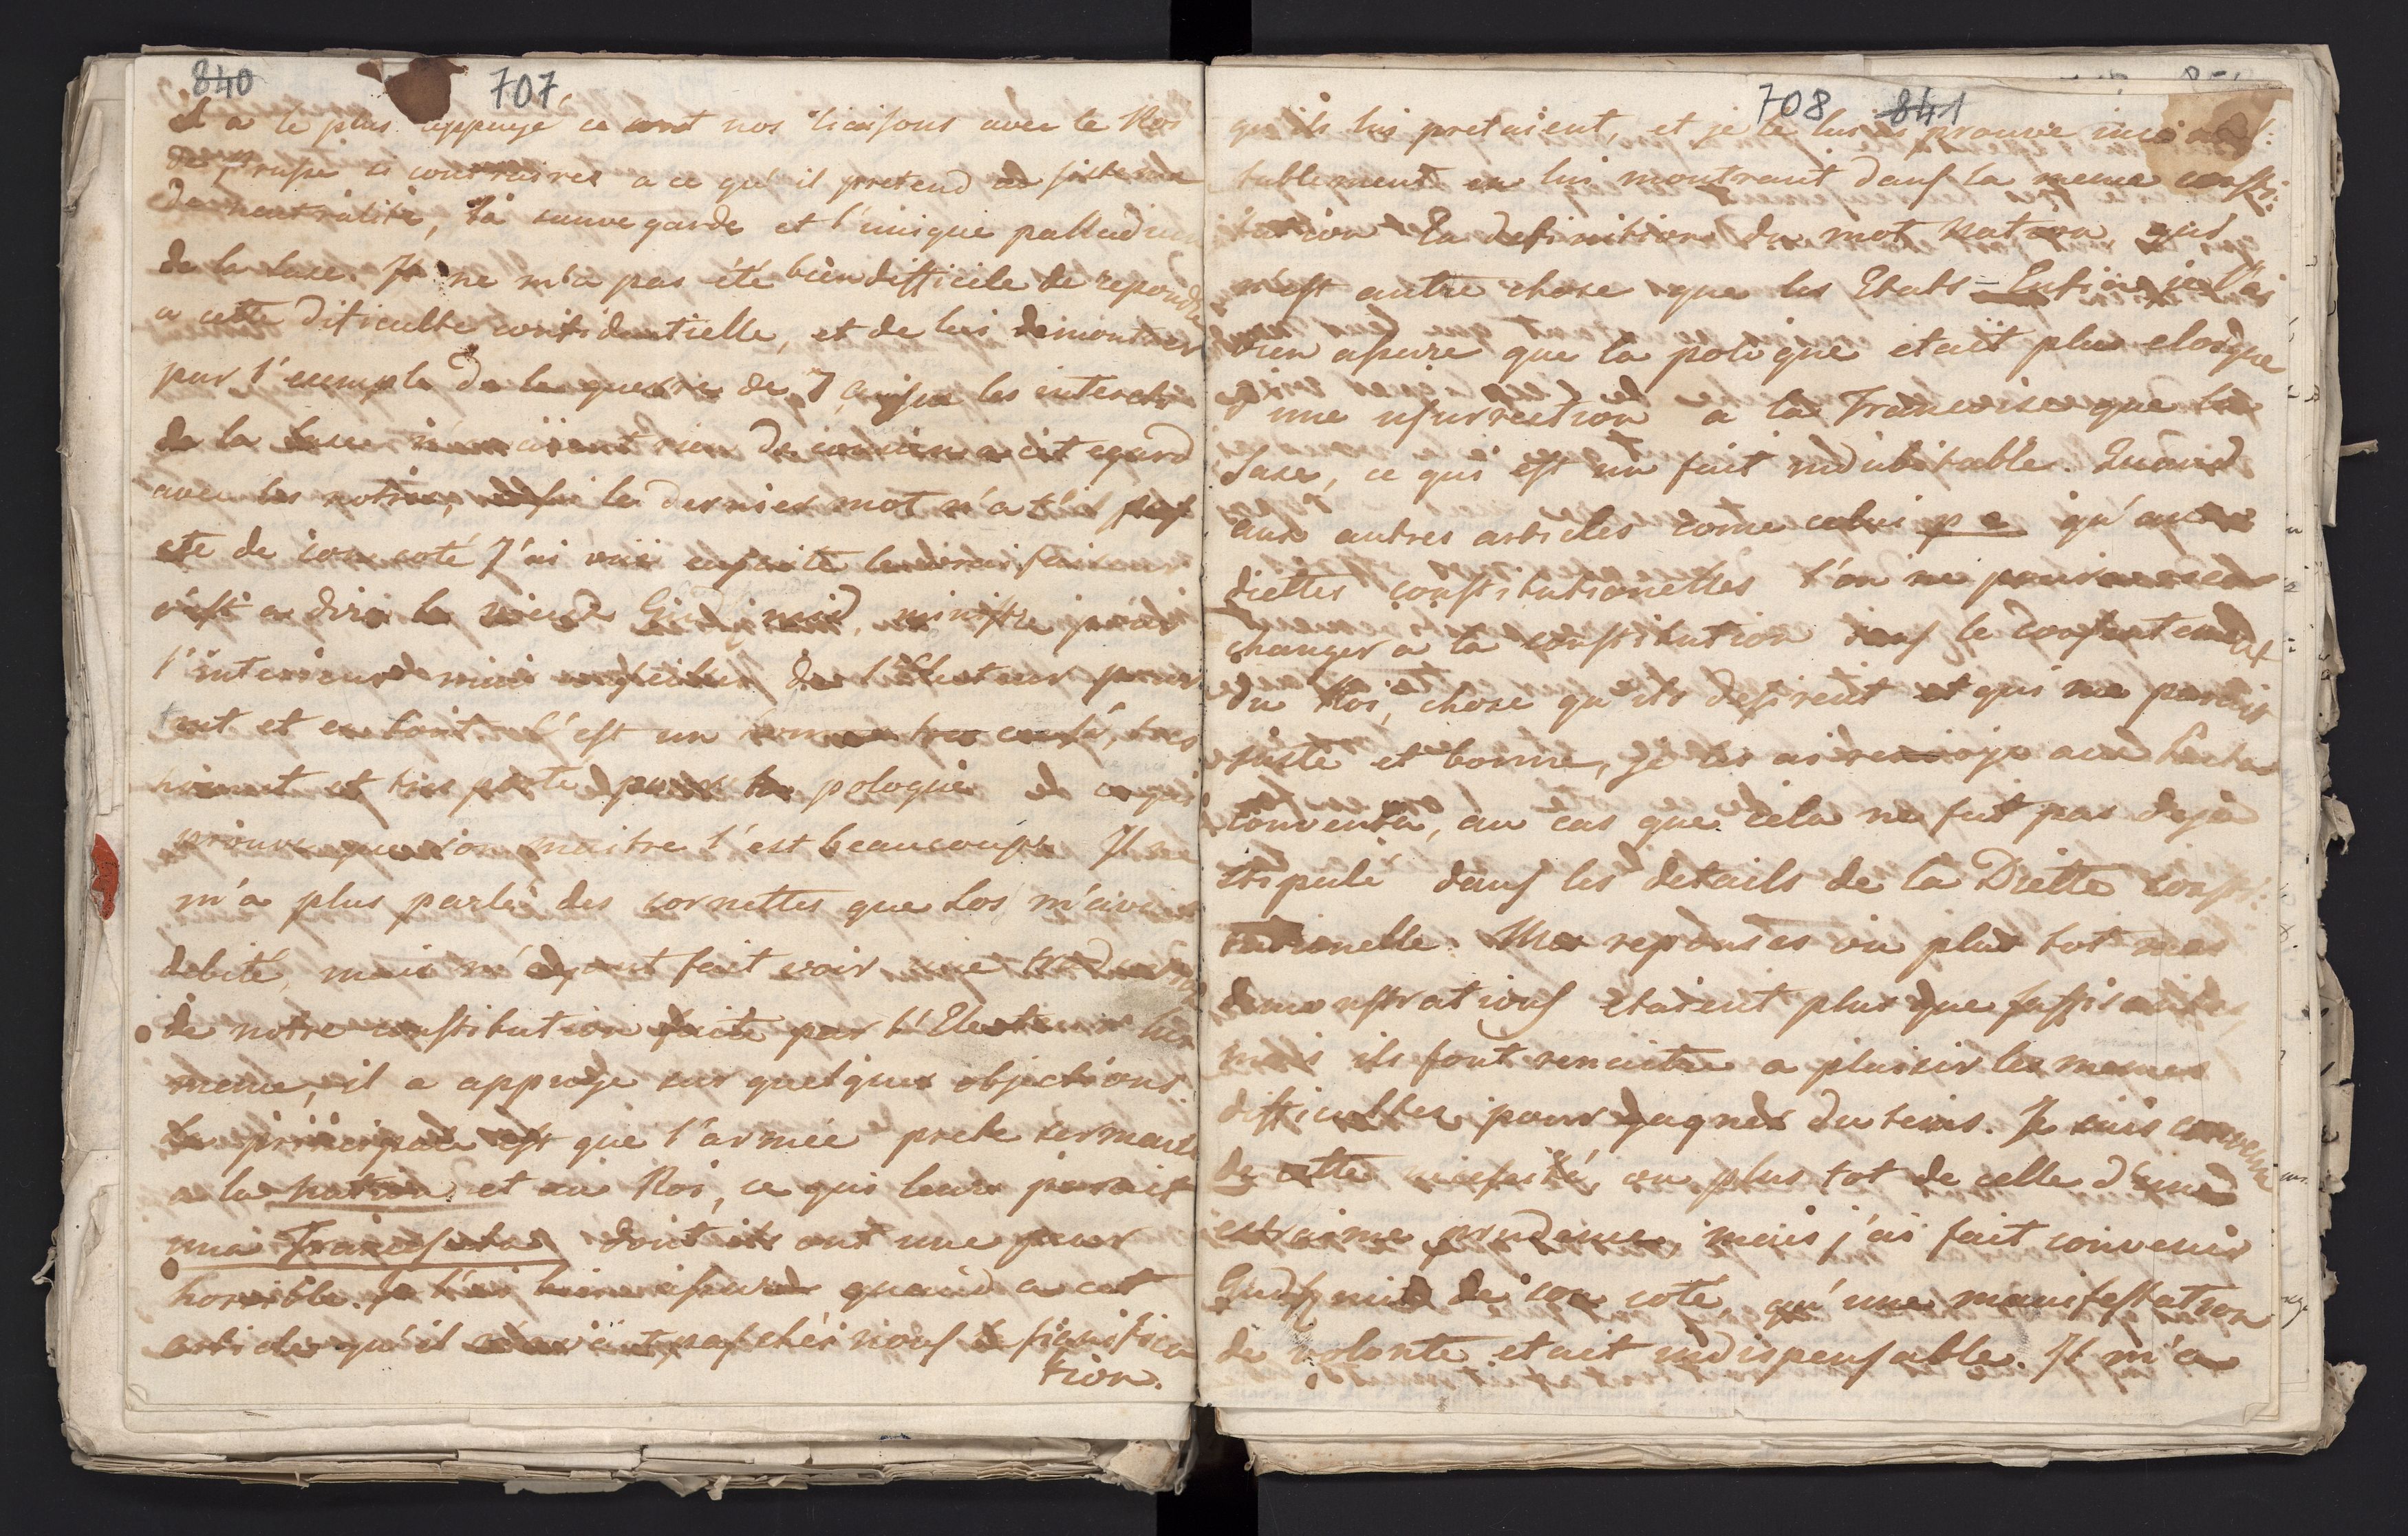 840 707
il a le plus appuyé ce sont nos liaisons avec le Roi
de Prusse si contraires a ce qu'il pretend
de neutralité, la sauve garde et l'unique palladium
de la Saxe. Il ne m'a pas été bien difficile de repondre
a cette dificulté confidentielle, et de lui demontrer
par l'exemple de la guerre de 7 les interets
de la Saxe n'avoient rien de comun a cet egard
avec les notres, le dernier mot n'a t'il pas
ete de son coté J'ai vüe ensuite le vrai faiseur
c'est a dire le vieux Gudschmid, ministre pour
l'interieur mais conseiller de l'Electeur pour
tout et en tout. C'est un home tres censé, tres
honnet et tres porté pour la pologne et ce qui
prouve que son maitre l'est beaucoup. Il ne
m'a plus parlé des sornettes que Los m'avoit
debité, mais m'ayant fait voir une traduction
de notre constitution faite par l'Electeur lui
meme, il a appuyé sur quelques objections.
La principale est que l'armée prete serment
a la nation et au Roi, ce qui leur parait
une dont ils ont une peur
horrible. Je l'ai bien assuré quand a cet
article qu'il n'avoit pas chéz nous la significa
tion.
708 841
qu'ils lui pretaient, et je le lui ai prouvé
tablement en lui montrant dans la meme consti:
tution la definition du mot nation, qui
n'est autre chose que les Etats - Enfin je l'ai
bien assuré que la pologne etait plus eloigné
d'une insurrection a la Francoise que la
Saxe, ce qui est un fait indubitable. Quand
aux autres articles come celui p e qu'aux
diettes constitutionelles l'on ne pourra rien
changer a la constitution sans le consentement
du Roi, chose qu'ils desirent et qui me parait
juste et bonne, je les ai renvoyé aux Pacta
Conventa, au cas que cela ne fut pas deja
stipulé dans les details de la Diette consti:
tutionelle. Mes reponses ou plus tot mes
demonstrations etaient plus que suffisantes,
mais ils font renaitre a plaisir les memes
difficultés pour gagner du tems. Je suis convenu
de cette necessité, ou plus tot de celle d'une
extraime prudence, mais j'ai fait convenir
Gudschmid de son coté, qu'une manifestation
de volonté etait indispensable. Il m'a